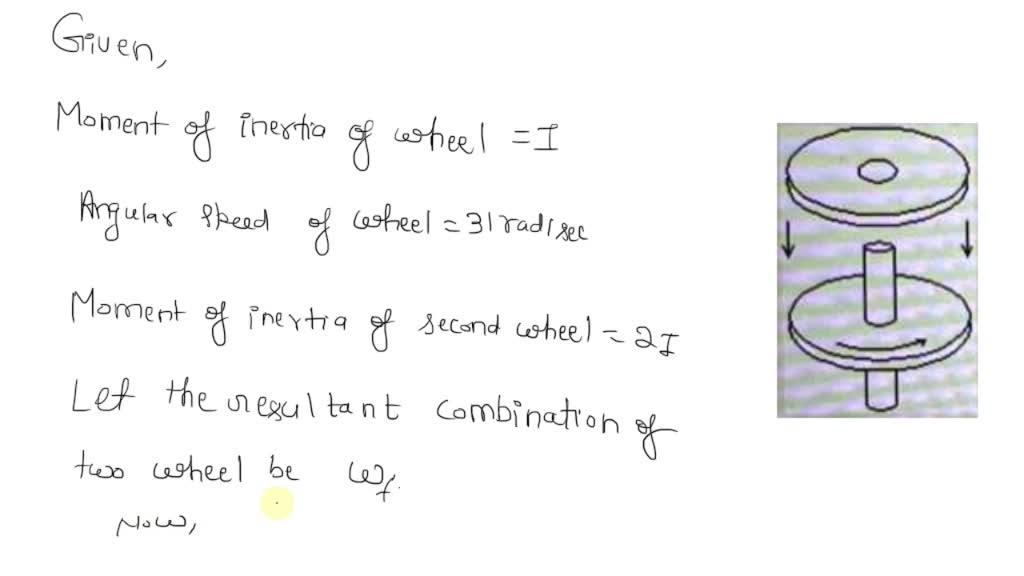 Given,
Moment of inertia of wheel = I
Angular speed of wheel = 31 rad/sec
Moment of inertia of second wheel = 2I
Let the resultant combination of
two wheel be ωf.
Now,